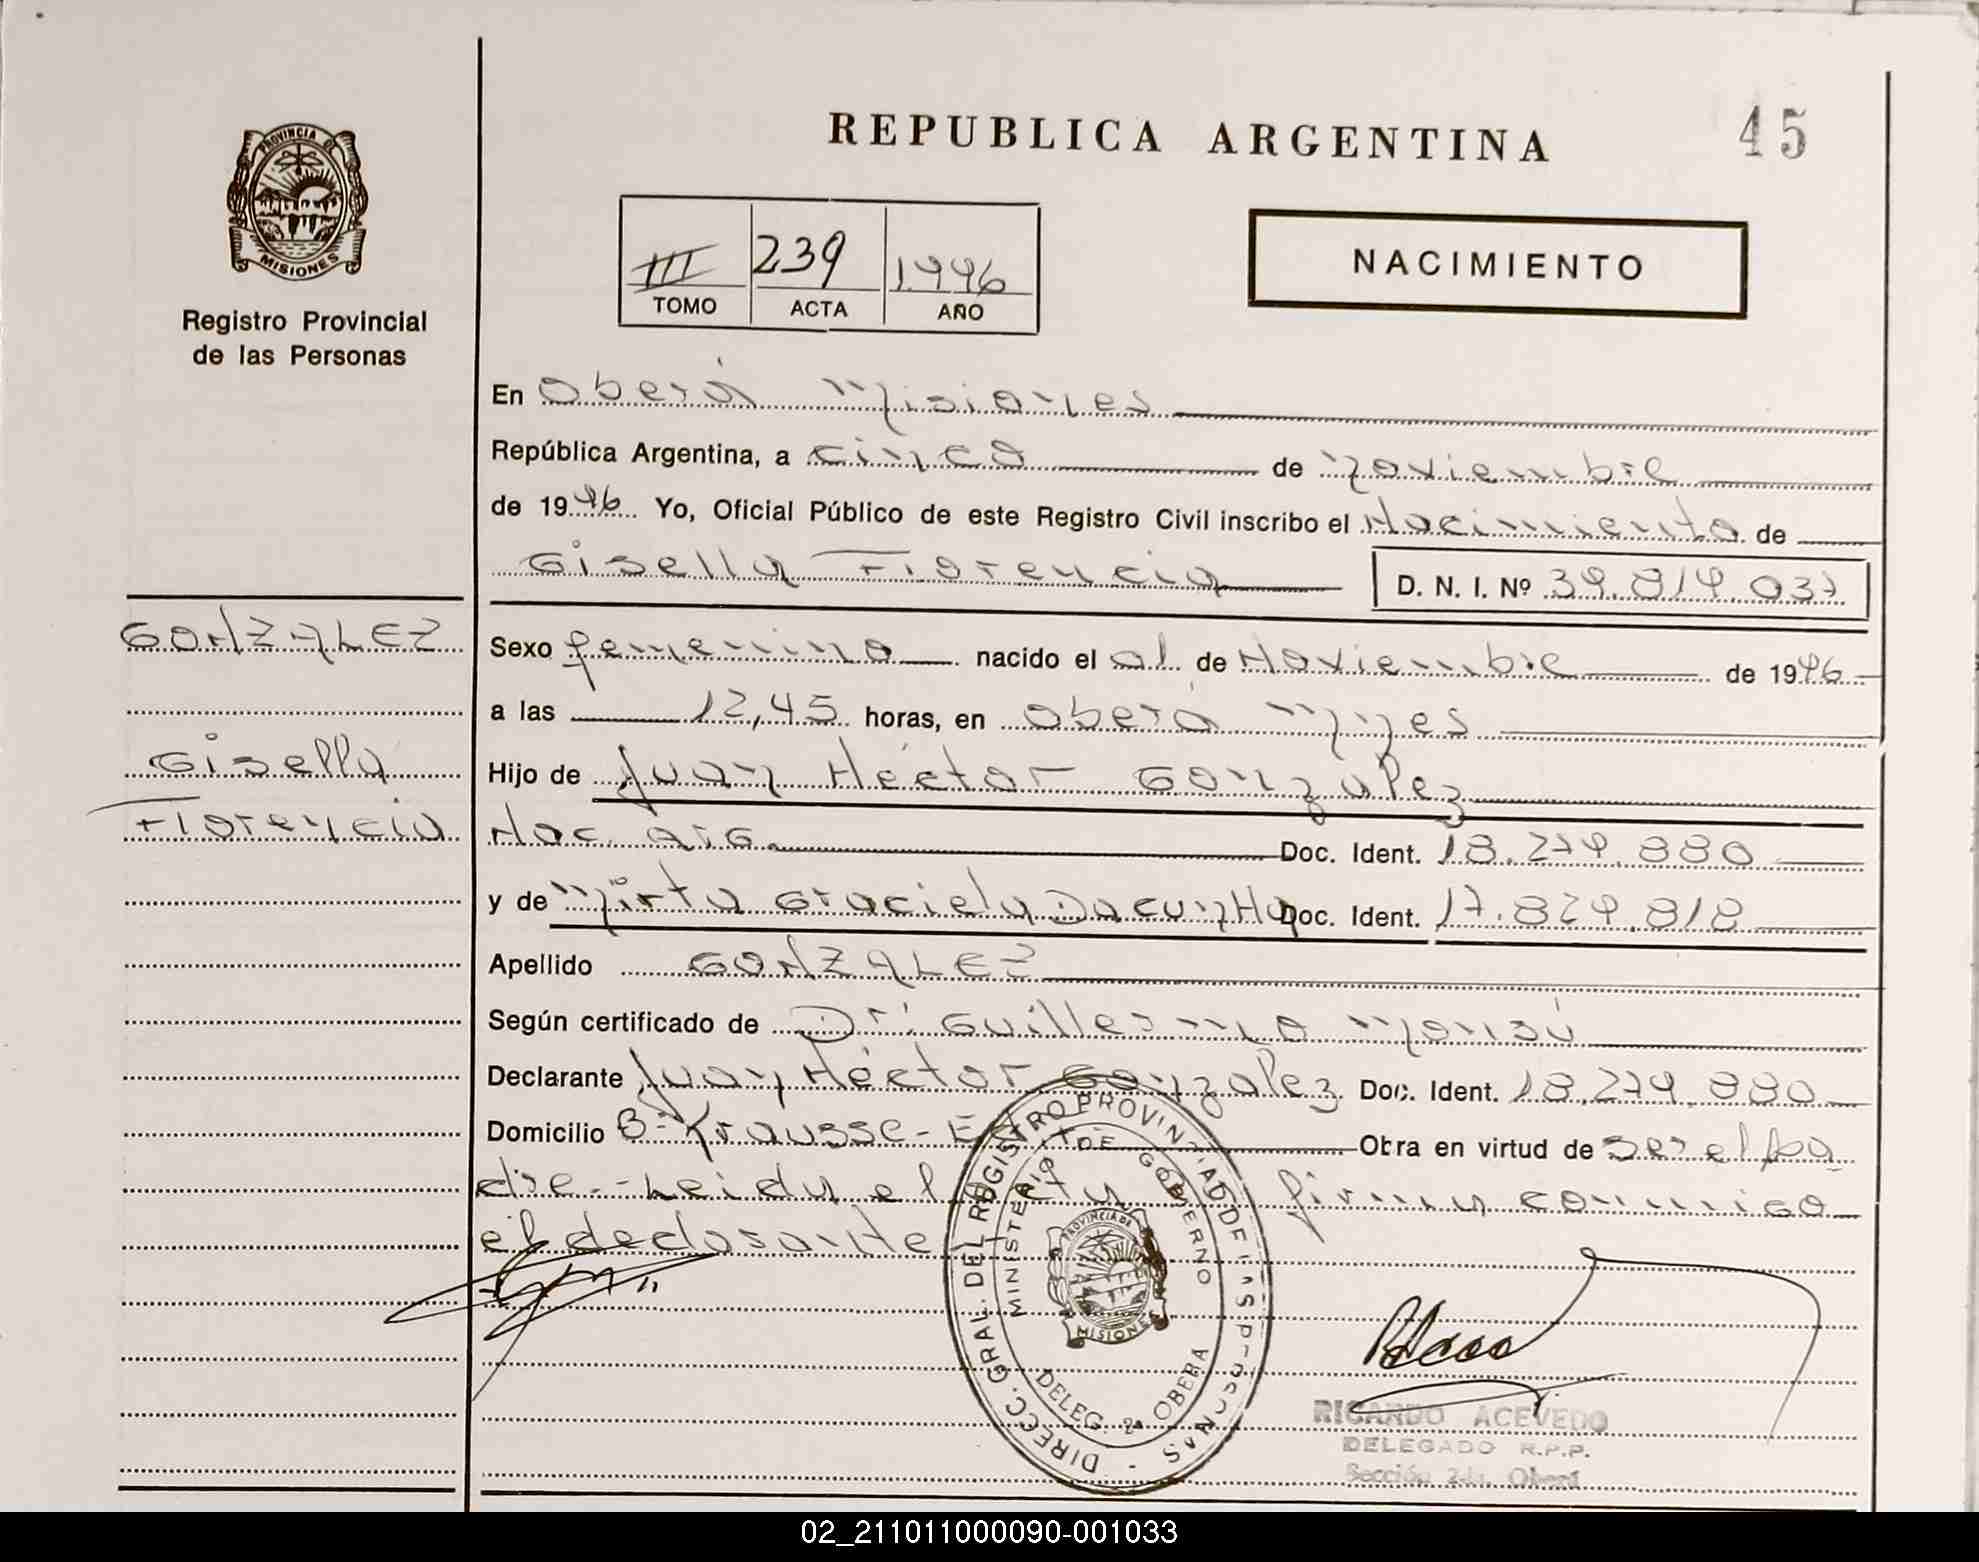 REPUBLICA ARGENTINA
45
PROVINCIA DE
MISIONES
Registro Provincial
de las Personas
III 239 1996
TOMO ACTA AÑO
NACIMIENTO
En Oberá Misiones
República Argentina, a cinco de Noviembre
de 1996 Yo, Oficial Público de este Registro Civil inscribo el Nacimiento de
Gisella Florencia D. N. I. Nº 39.819.037
GONZALEZ
Gisella
Florencia
Sexo femenino nacido el 01 de Noviembre de 1996
a las 12,45 horas, en Oberá Mnes
Hijo de Juan Héctor Gonzalez
Nac. arg. Doc. Ident. 18.279.880
y de Mirta Graciela Dacunha Doc. Ident. 17.829.818
Apellido GONZALEZ
Según certificado de Dr. Guillermo
Declarante Juan Héctor Gonzalez Doc. Ident. 18.279.880
Domicilio Bº Krausse- Obra en virtud de ser el pa
dre.- Leida el acta firma conmigo
el declarante
DIRECC. GRAL. DEL REGISTRO PROVINCIAL DE LAS PERSONAS
MINISTERIO DE GOBIERNO
PROVINCIA DE
MISIONES
DELEG. 2ª OBERA
RICARDO ACEVEDO
DELEGADO R.P.P.
Sección 2da. Oberá
02_211011000090-001033